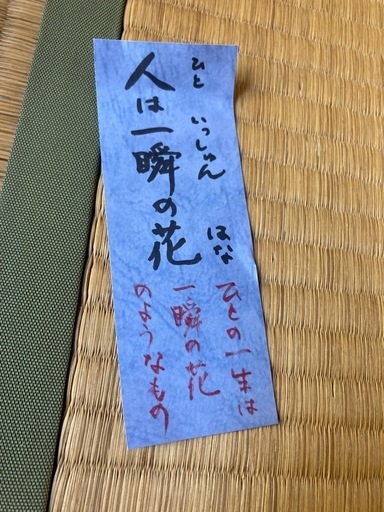 人は一瞬の花
ひと いっしゅん はな
ひとの一生は
一瞬の花
のようなもの